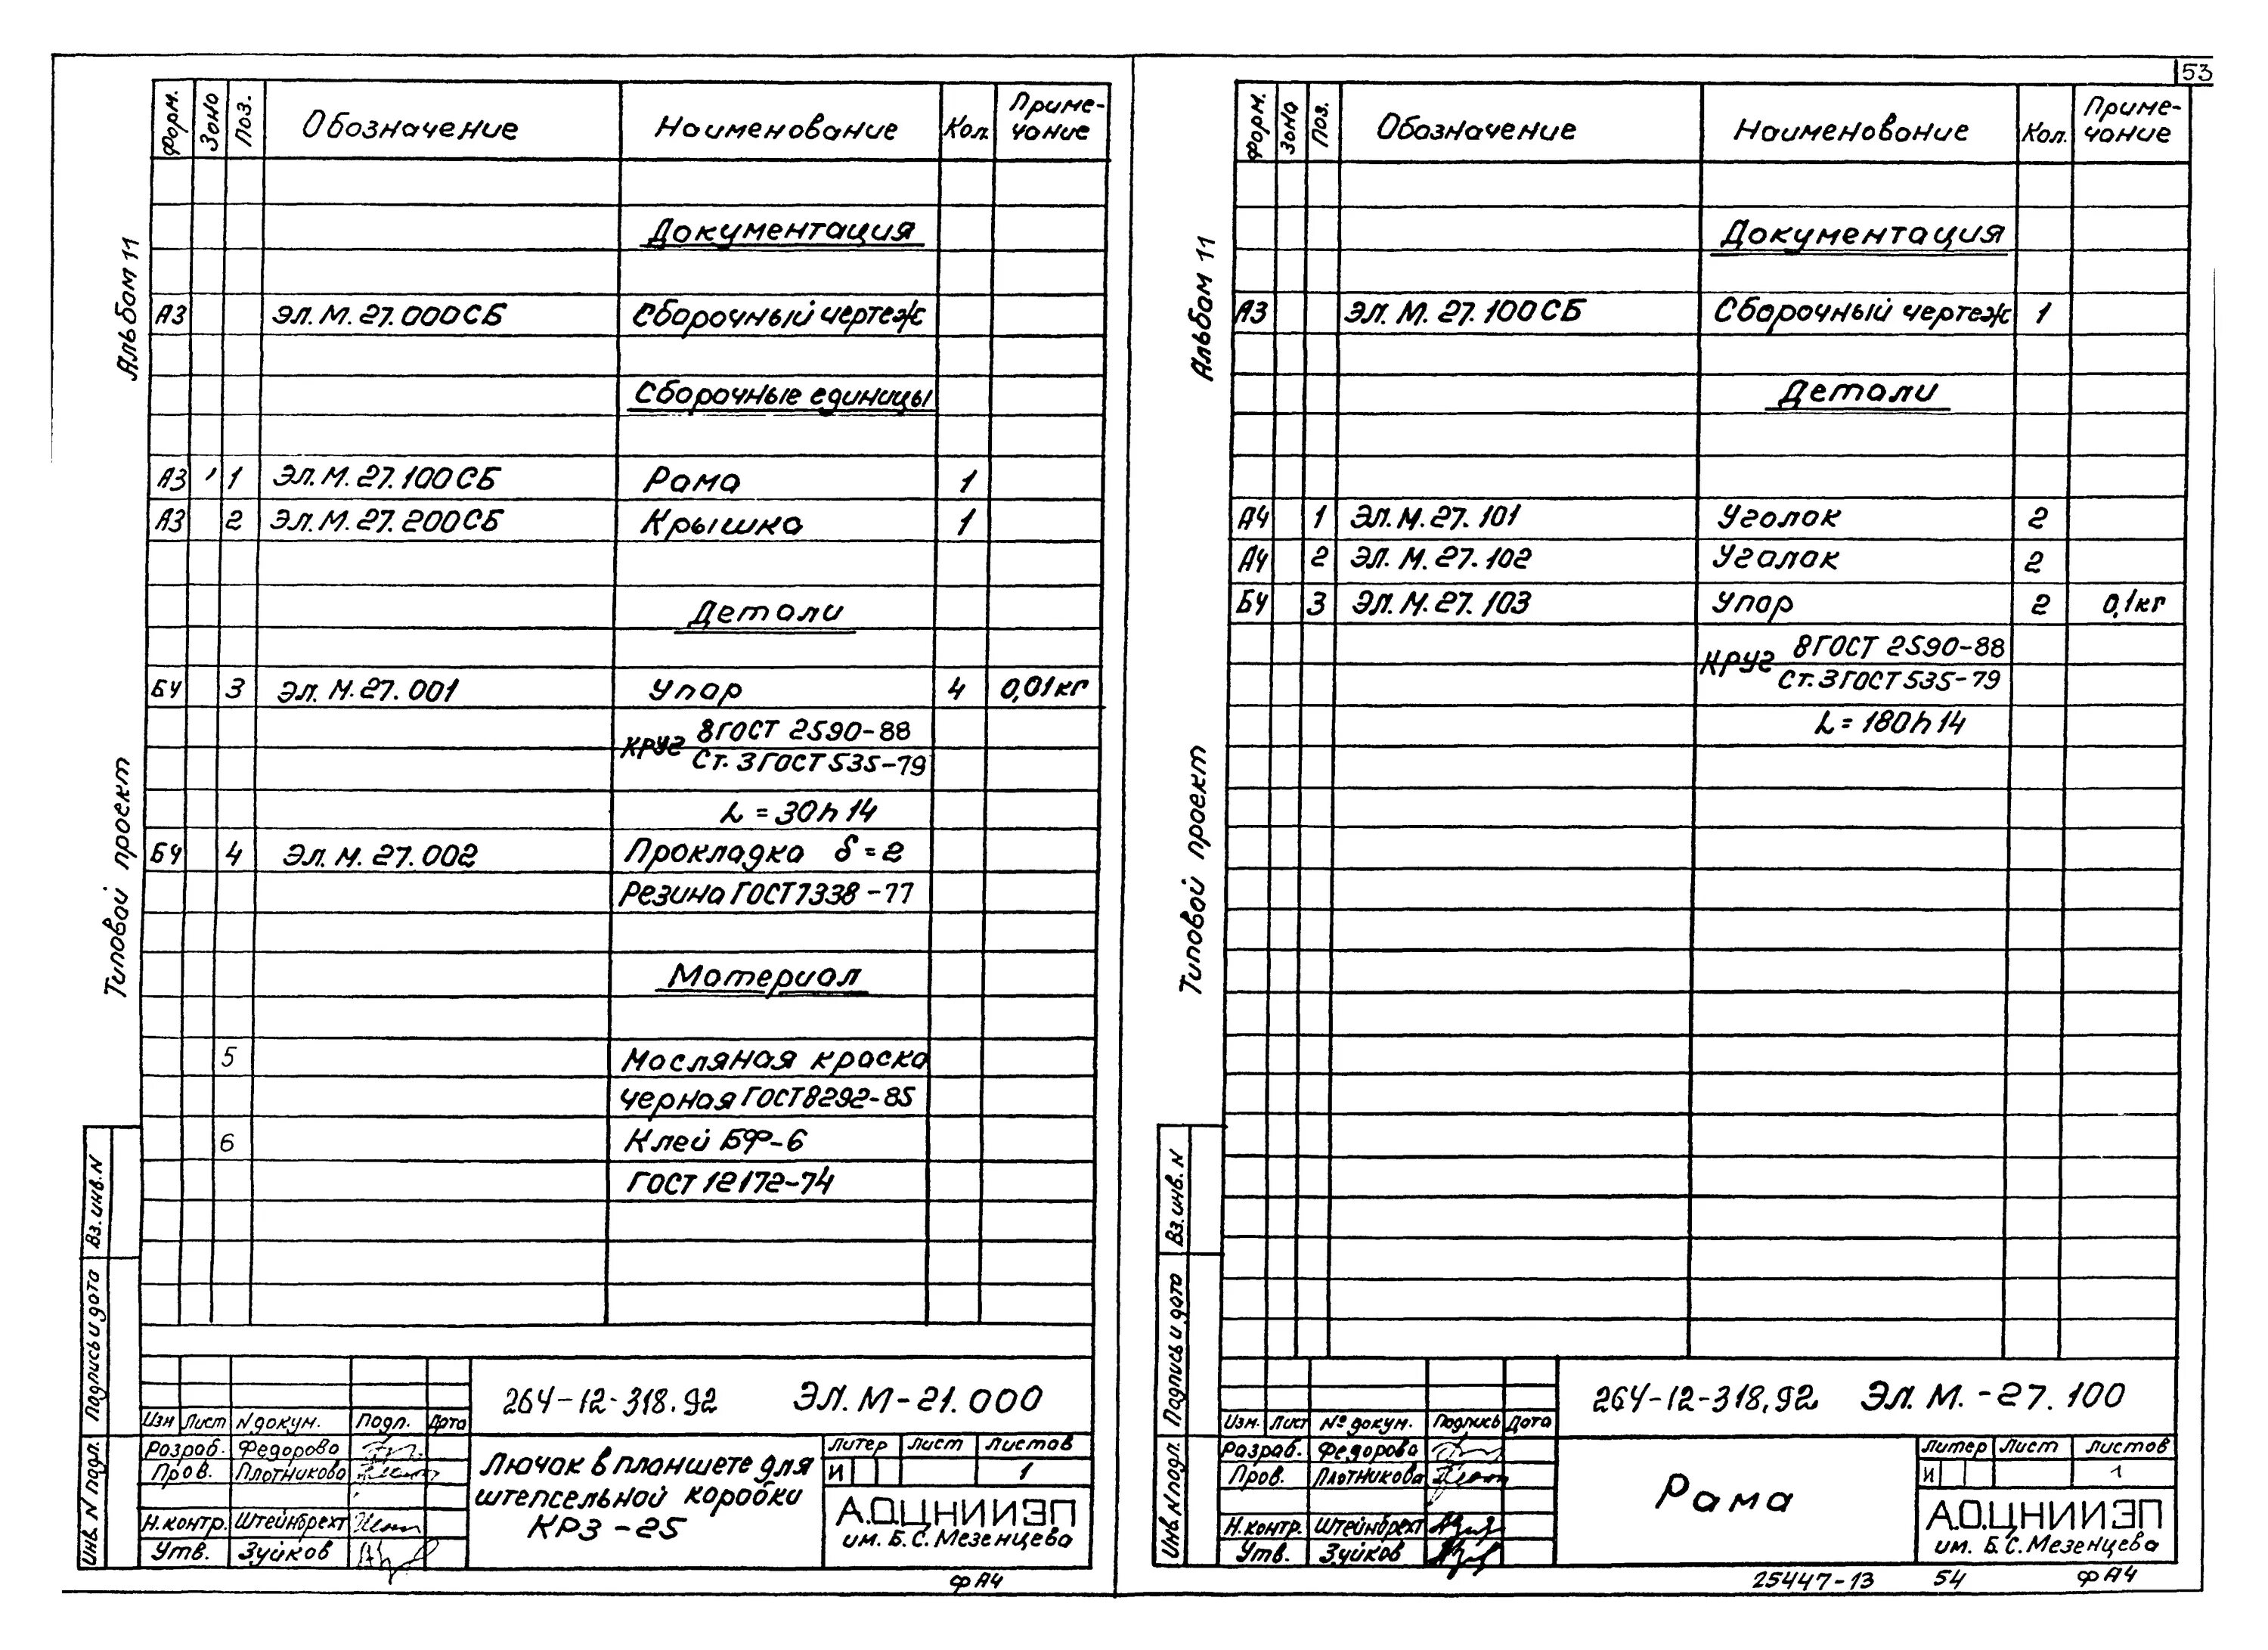 53
Форм. Зона Поз. Обозначение Наименование Кол. Приме-
чание
Документация
А3 ЭЛ.М.27.000СБ Сборочный чертеж
Сборочные единицы
А3 1 ЭЛ.М.27.100СБ Рама 1
А3 2 ЭЛ.М.27.200СБ Крышка 1
Детали
БЧ 3 ЭЛ.М.27.001 Упор 4 0,01кг
КРУГ 8ГОСТ 2590-88
Ст.3ГОСТ535-79
L=30h14
БЧ 4 ЭЛ.М.27.002 Прокладка δ=2
Резина ГОСТ7338-77
Материал
5 Масляная краска
черная ГОСТ8292-85
6 Клей БФ-6
ГОСТ 12172-74
Альбом 11
Типовой проект
Вз.инв.N
Подпись и дата
Инв.N подл.
264-12-318.92 ЭЛ.М-21.000
Изм Лист Nдокум. Подл. Дата
Разраб. Федорова
Пров. Плотникова
Н.контр. Штейнбрехт
Утв. Зуйков
Лючок в планшете для
штепсельной коробки
КРЗ-25
Литер Лист Листов
И 1
А.О.ЦНИИЭП
им. Б.С.Мезенцева
ФА4
Форм. Зона Поз. Обозначение Наименование Кол. Приме-
чание
Документация
А3 ЭЛ.М.27.100СБ Сборочный чертеж 1
Детали
А4 1 ЭЛ.М.27.101 Уголок 2
А4 2 ЭЛ.М.27.102 Уголок 2
БЧ 3 ЭЛ.М.27.103 Упор 2 0,1кг
КРУГ 8ГОСТ 2590-88
Ст.3ГОСТ535-79
L=180h14
Альбом 11
Типовой проект
Вз.инв.N
Подпись и дата
Инв.N подл.
264-12-318.92 ЭЛ.М.-27.100
Изм. Лист №докум. Подпись Дата
Разраб. Федорова
Пров. Плотникова
Н.контр. Штейнбрехт
Утв. Зуйков
Рама
Литер Лист Листов
И 1
А.О.ЦНИИЭП
им. Б.С.Мезенцева
25447-13 54 ФА4